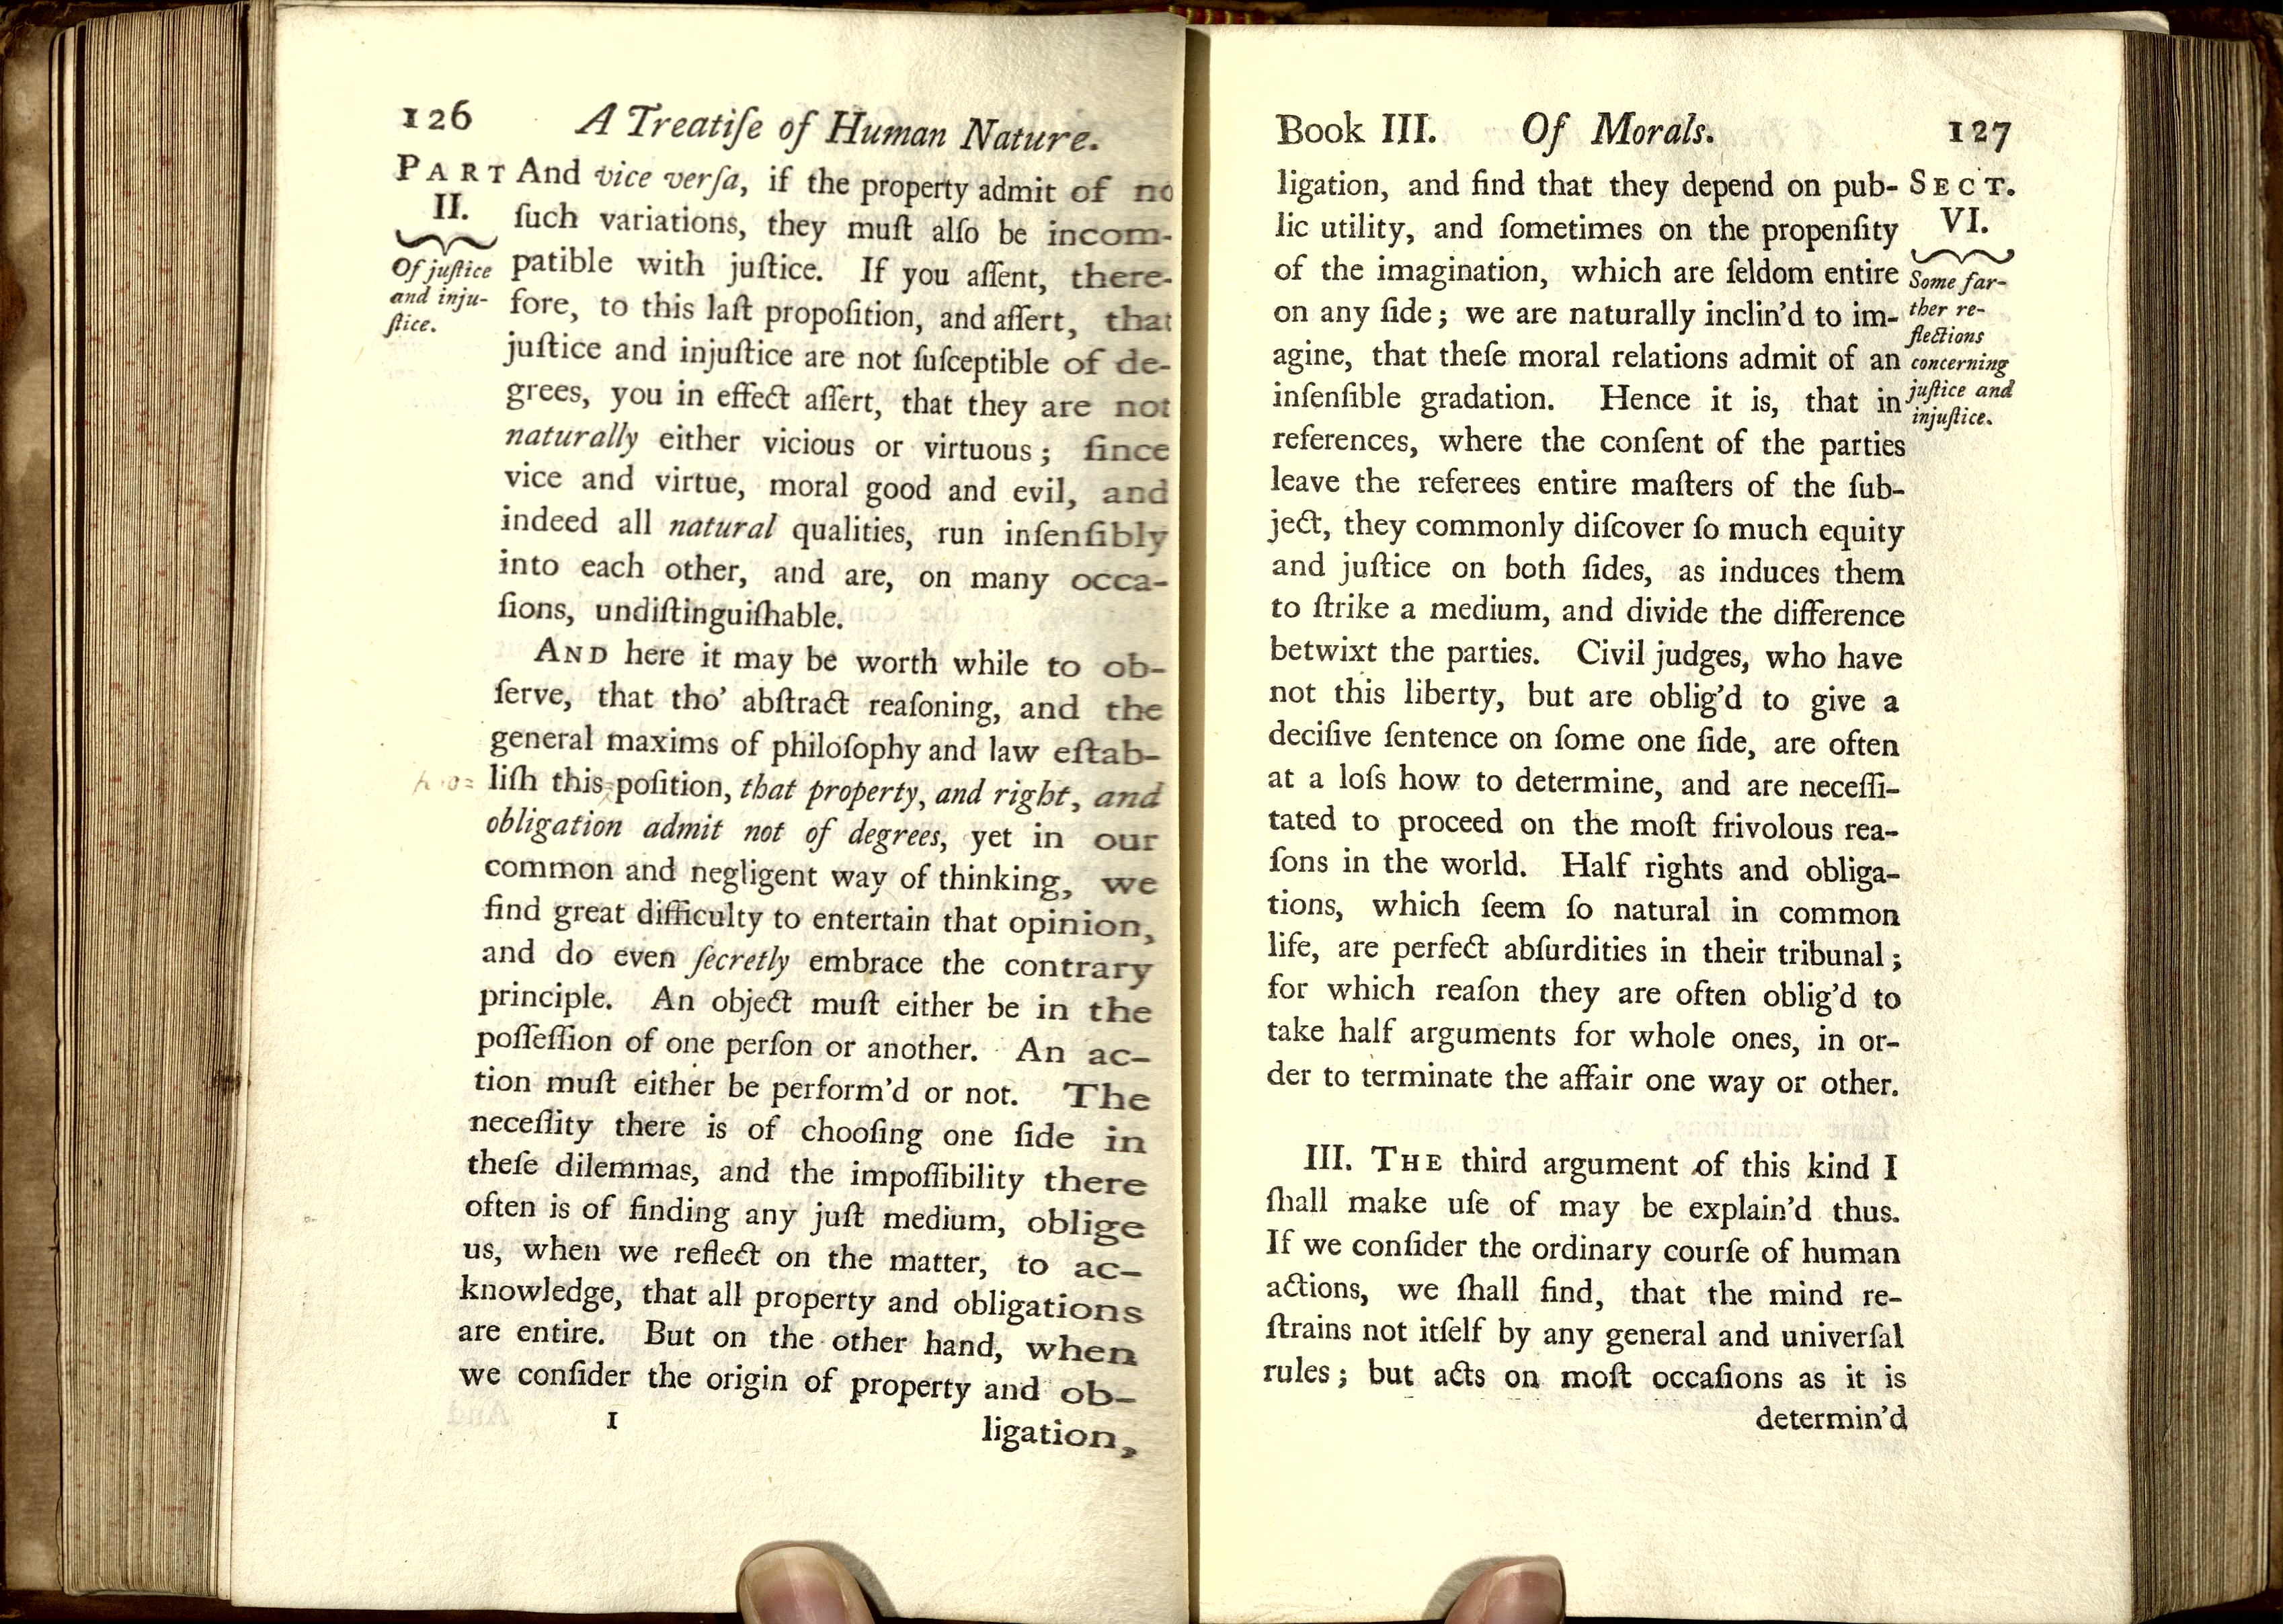 126 A Treatiſe of Human Nature.
PART
II.
Of juſtice
and inju-
ſtice.
And vice verſa, if the property admit of no
ſuch variations, they muſt alſo be incom-
patible with juſtice. If you aſſent, there-
fore, to this laſt propoſition, and aſſert, that
juſtice and injuſtice are not ſuſceptible of de-
grees, you in effect aſſert, that they are not
naturally either vicious or virtuous; ſince
vice and virtue, moral good and evil, and
indeed all natural qualities, run inſenſibly
into each other, and are, on many occa-
ſions, undiſtinguiſhable.
AND here it may be worth while to ob-
ſerve, that tho' abſtract reaſoning, and the
general maxims of philoſophy and law eſtab-
liſh this poſition, that property, and right, and
obligation admit not of degrees, yet in our
common and negligent way of thinking, we
find great difficulty to entertain that opinion,
and do even ſecretly embrace the contrary
principle. An object muſt either be in the
poſſeſſion of one perſon or another. An ac-
tion muſt either be perform'd or not. The
neceſſity there is of chooſing one ſide in
theſe dilemmas, and the impoſſibility there
often is of finding any juſt medium, oblige
us, when we reflect on the matter, to ac-
knowledge, that all property and obligations
are entire. But on the other hand, when
we conſider the origin of property and ob-
1 ligation,
Book III. Of Morals. 127
SECT.
VI.
Some far-
ther re-
flections
concerning
juſtice and
injuſtice.
ligation, and find that they depend on pub-
lic utility, and ſometimes on the propenſity
of the imagination, which are ſeldom entire
on any ſide; we are naturally inclin'd to im-
agine, that theſe moral relations admit of an
inſenſible gradation. Hence it is, that in
references, where the conſent of the parties
leave the referees entire maſters of the ſub-
ject, they commonly diſcover ſo much equity
and juſtice on both ſides, as induces them
to ſtrike a medium, and divide the difference
betwixt the parties. Civil judges, who have
not this liberty, but are oblig'd to give a
deciſive ſentence on ſome one ſide, are often
at a loſs how to determine, and are neceſſi-
tated to proceed on the moſt frivolous rea-
ſons in the world. Half rights and obliga-
tions, which ſeem ſo natural in common
life, are perfect abſurdities in their tribunal;
for which reaſon they are often oblig'd to
take half arguments for whole ones, in or-
der to terminate the affair one way or other.
III. THE third argument of this kind I
ſhall make uſe of may be explain'd thus.
If we conſider the ordinary courſe of human
actions, we ſhall find, that the mind re-
ſtrains not itſelf by any general and univerſal
rules; but acts on moſt occaſions as it is
determin'd